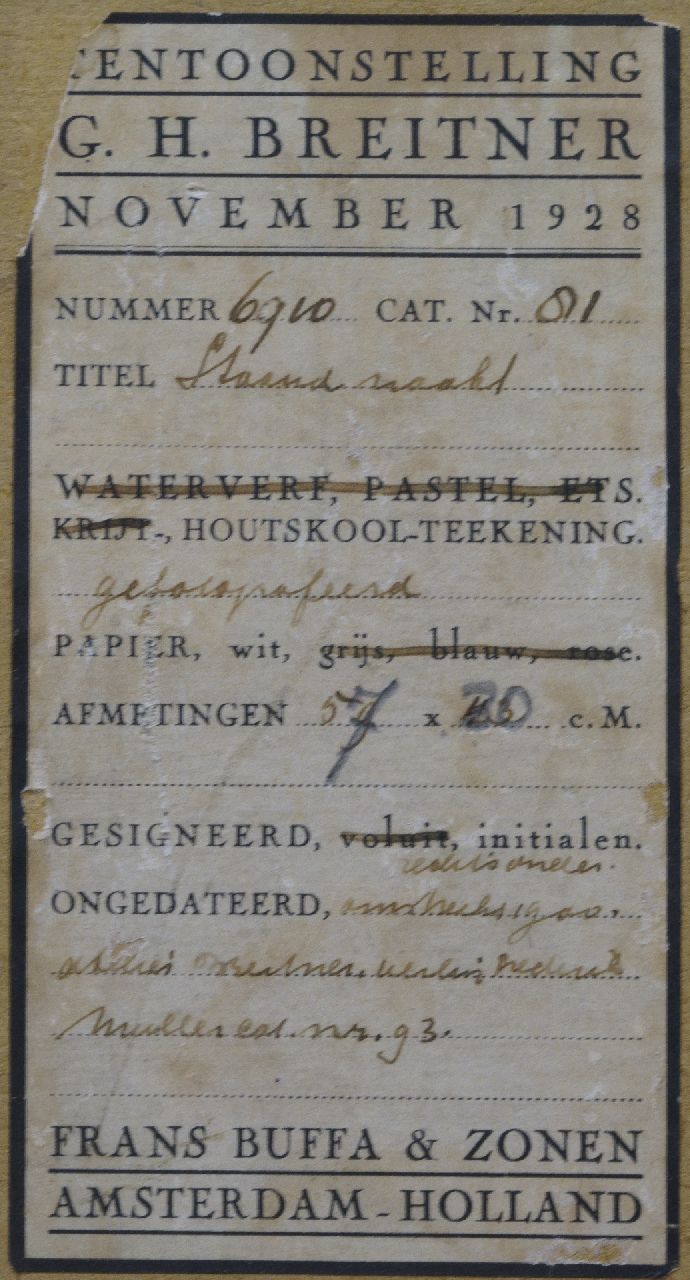 TENTOONSTELLING
G. H. BREITNER
NOVEMBER 1928
NUMMER 6910 CAT. Nr. 81
TITEL Staand naakt
WATERVERF, PASTEL, ETS.
KRIJT-, HOUTSKOOL-TEEKENING.
gefotografeerd
PAPIER, wit, grijs, blauw, rose.
AFMETINGEN 57 x 30 c.M.
GESIGNEERD, voluit, initialen.
rechts onder.
ONGEDATEERD, omstreeks 1900.
atelier Breitner. veiling Frederik
Muller cat. nr. 93.
FRANS BUFFA & ZONEN
AMSTERDAM-HOLLAND